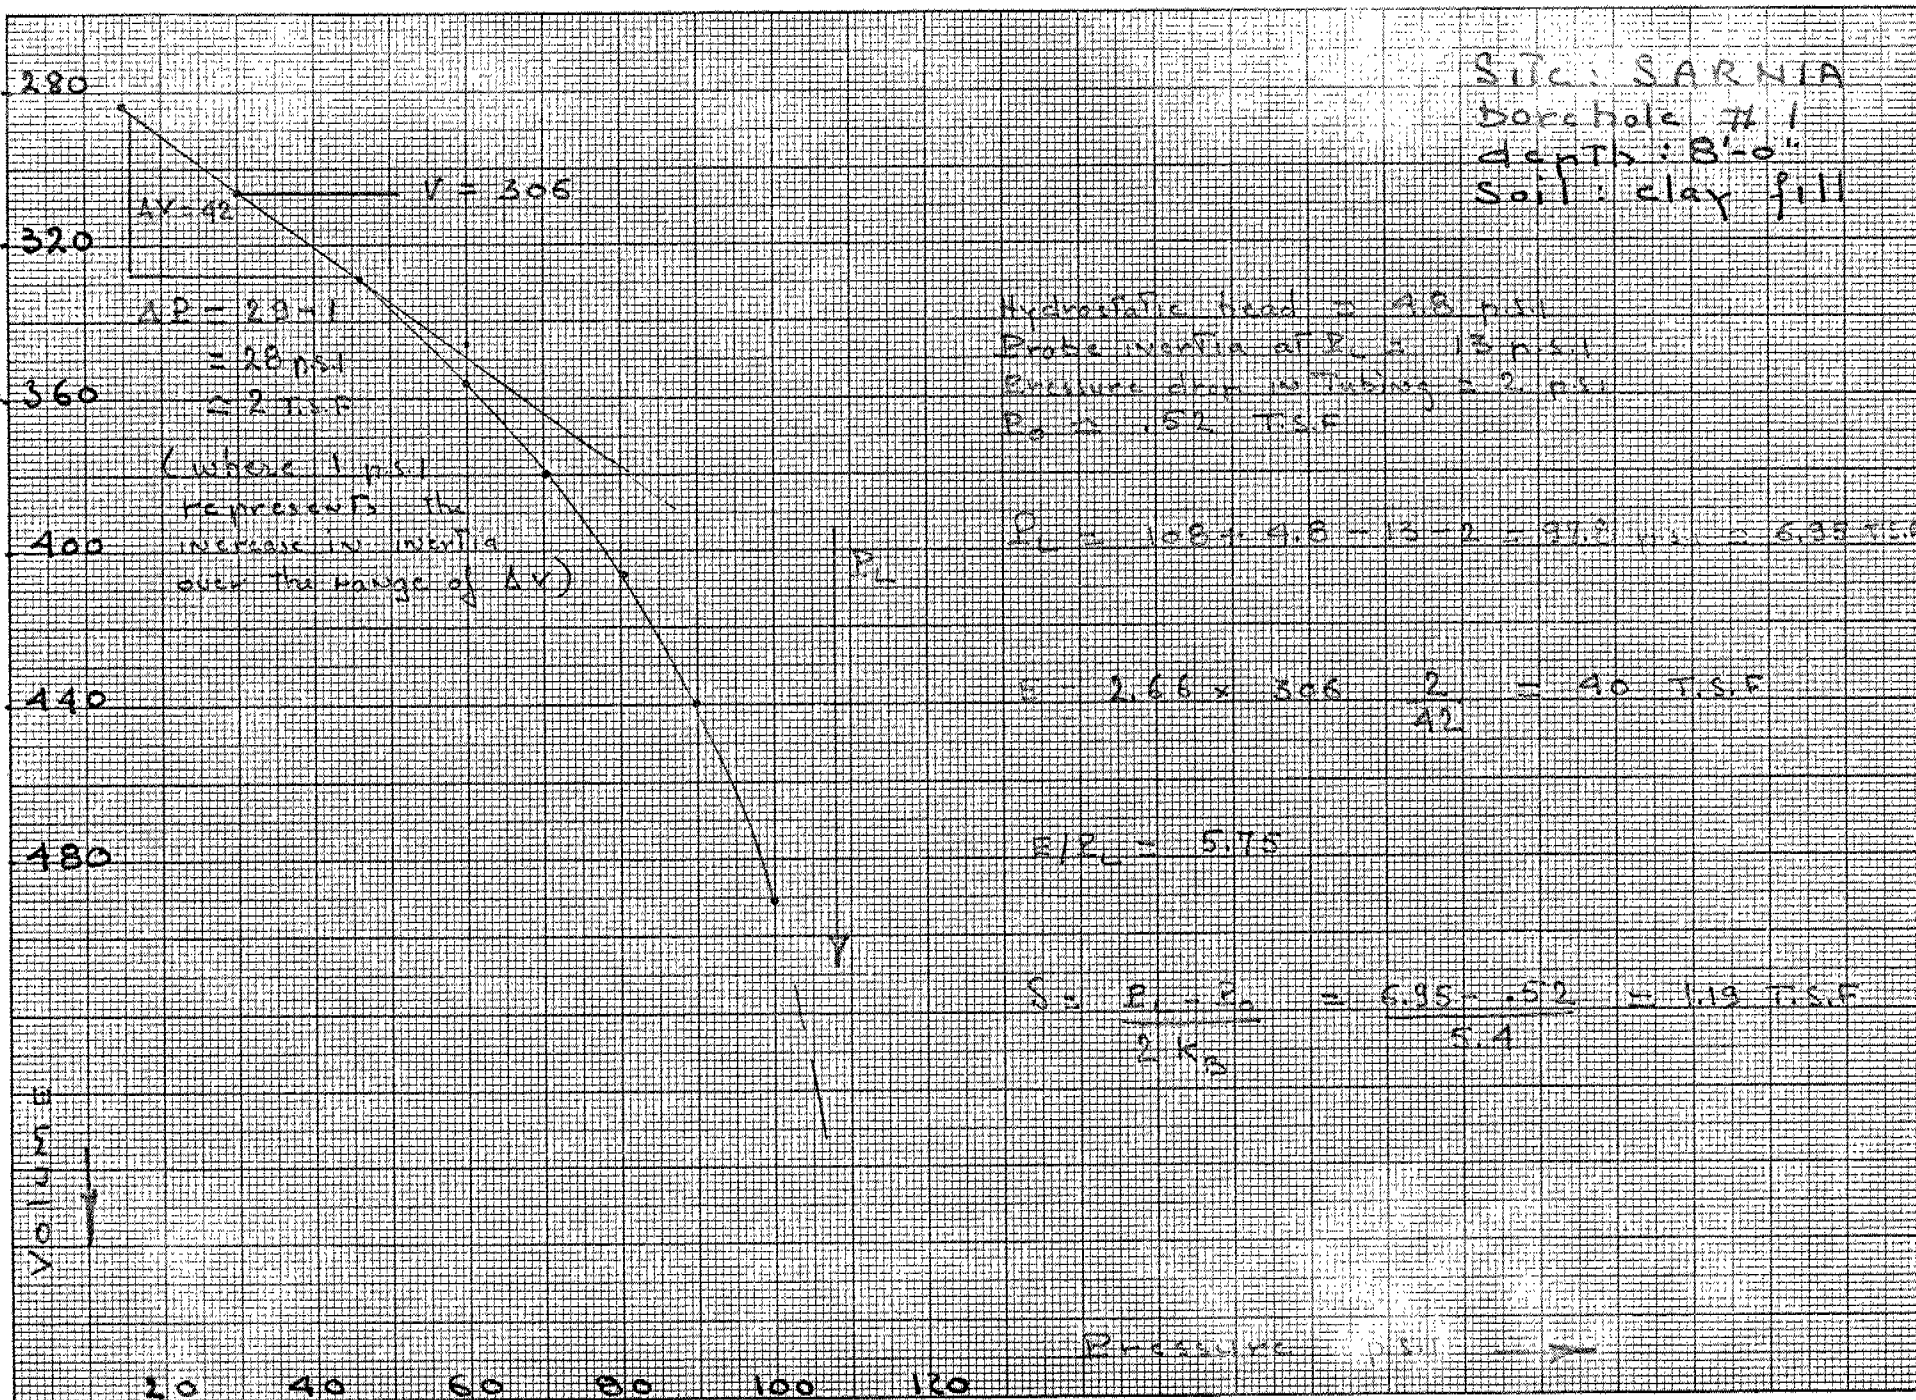 Site: SARNIA
borehole # 1
depth: 8'-0"
Soil: clay fill
280
320
360
400
440
480
ΔV=42
V = 306
ΔP = 29-1
= 28 p.s.i
= 2 T.S.F
(where 1 p.s.i
represents the
increase in inertia
over the range of ΔV)
Hydrostatic head = 4.8 p.s.i
Probe inertia at PL = 13 p.s.i
Pressure drop in Tubing = 2 p.s.i
Po = .52 T.S.F
PL
PL = 108 + 4.8 - 13 - 2 = 97.8 p.s.i = T.S.F
E 2.66 x 306 2/42 = 40 T.S.F
E/PL = 5.75
S = PL - Po / 2 KB = 6.95 - .52 / 5.4 = 1.19 T.S.F
Volume
Pressure p.s.i
20 40 60 80 100 120